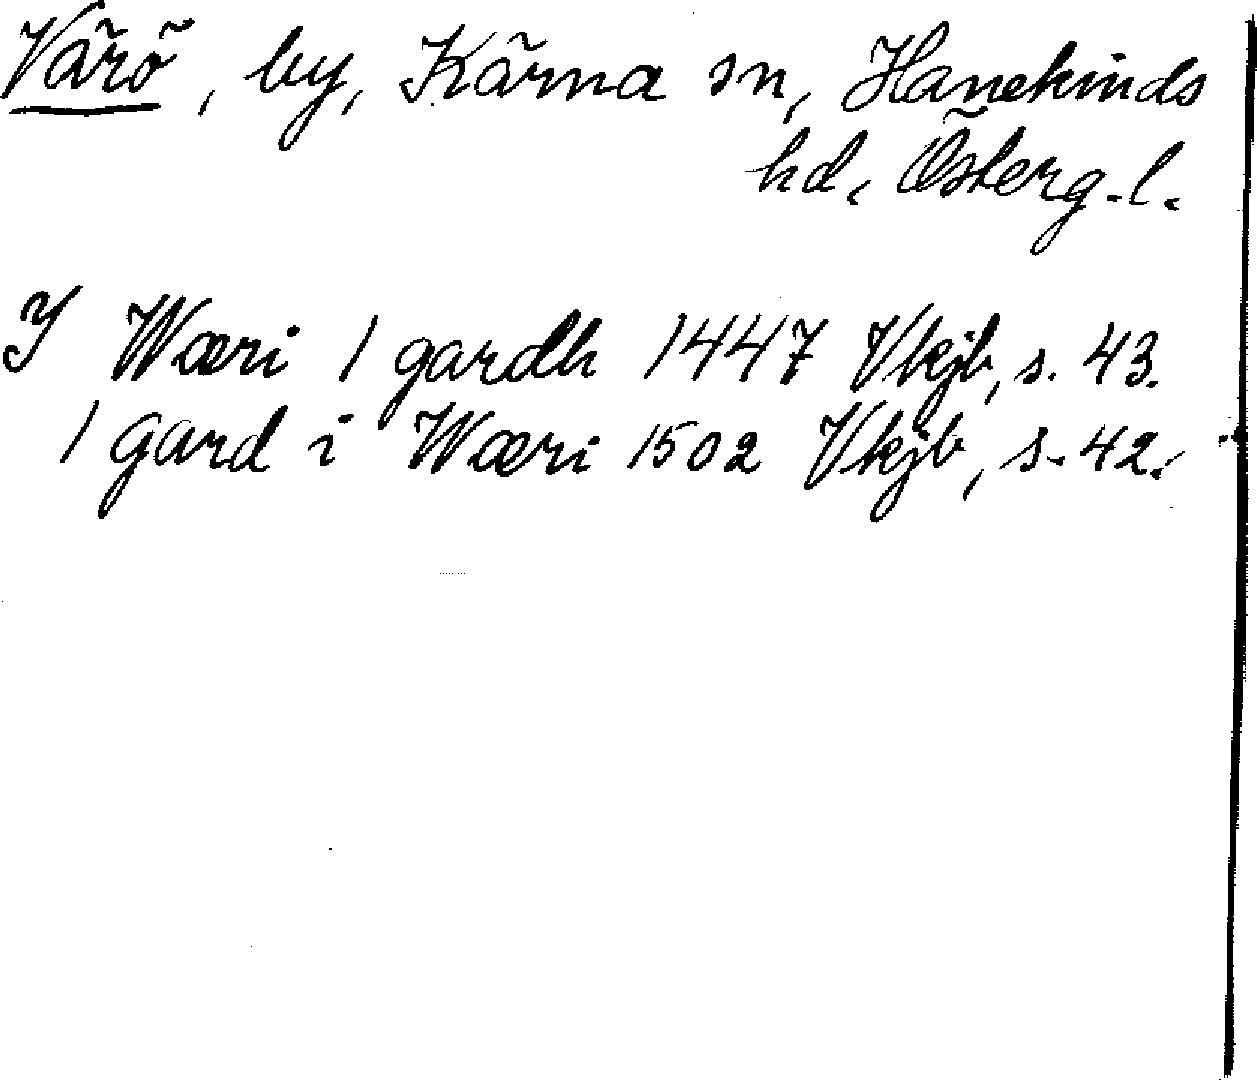 Värö, by, Kärna sn, Hanekinds
hd, Österg. l.
I Wæri 1 gardh 1447 Vkjb, s. 43.
1 gard i Wæri 1502 Vkjb, s. 42.